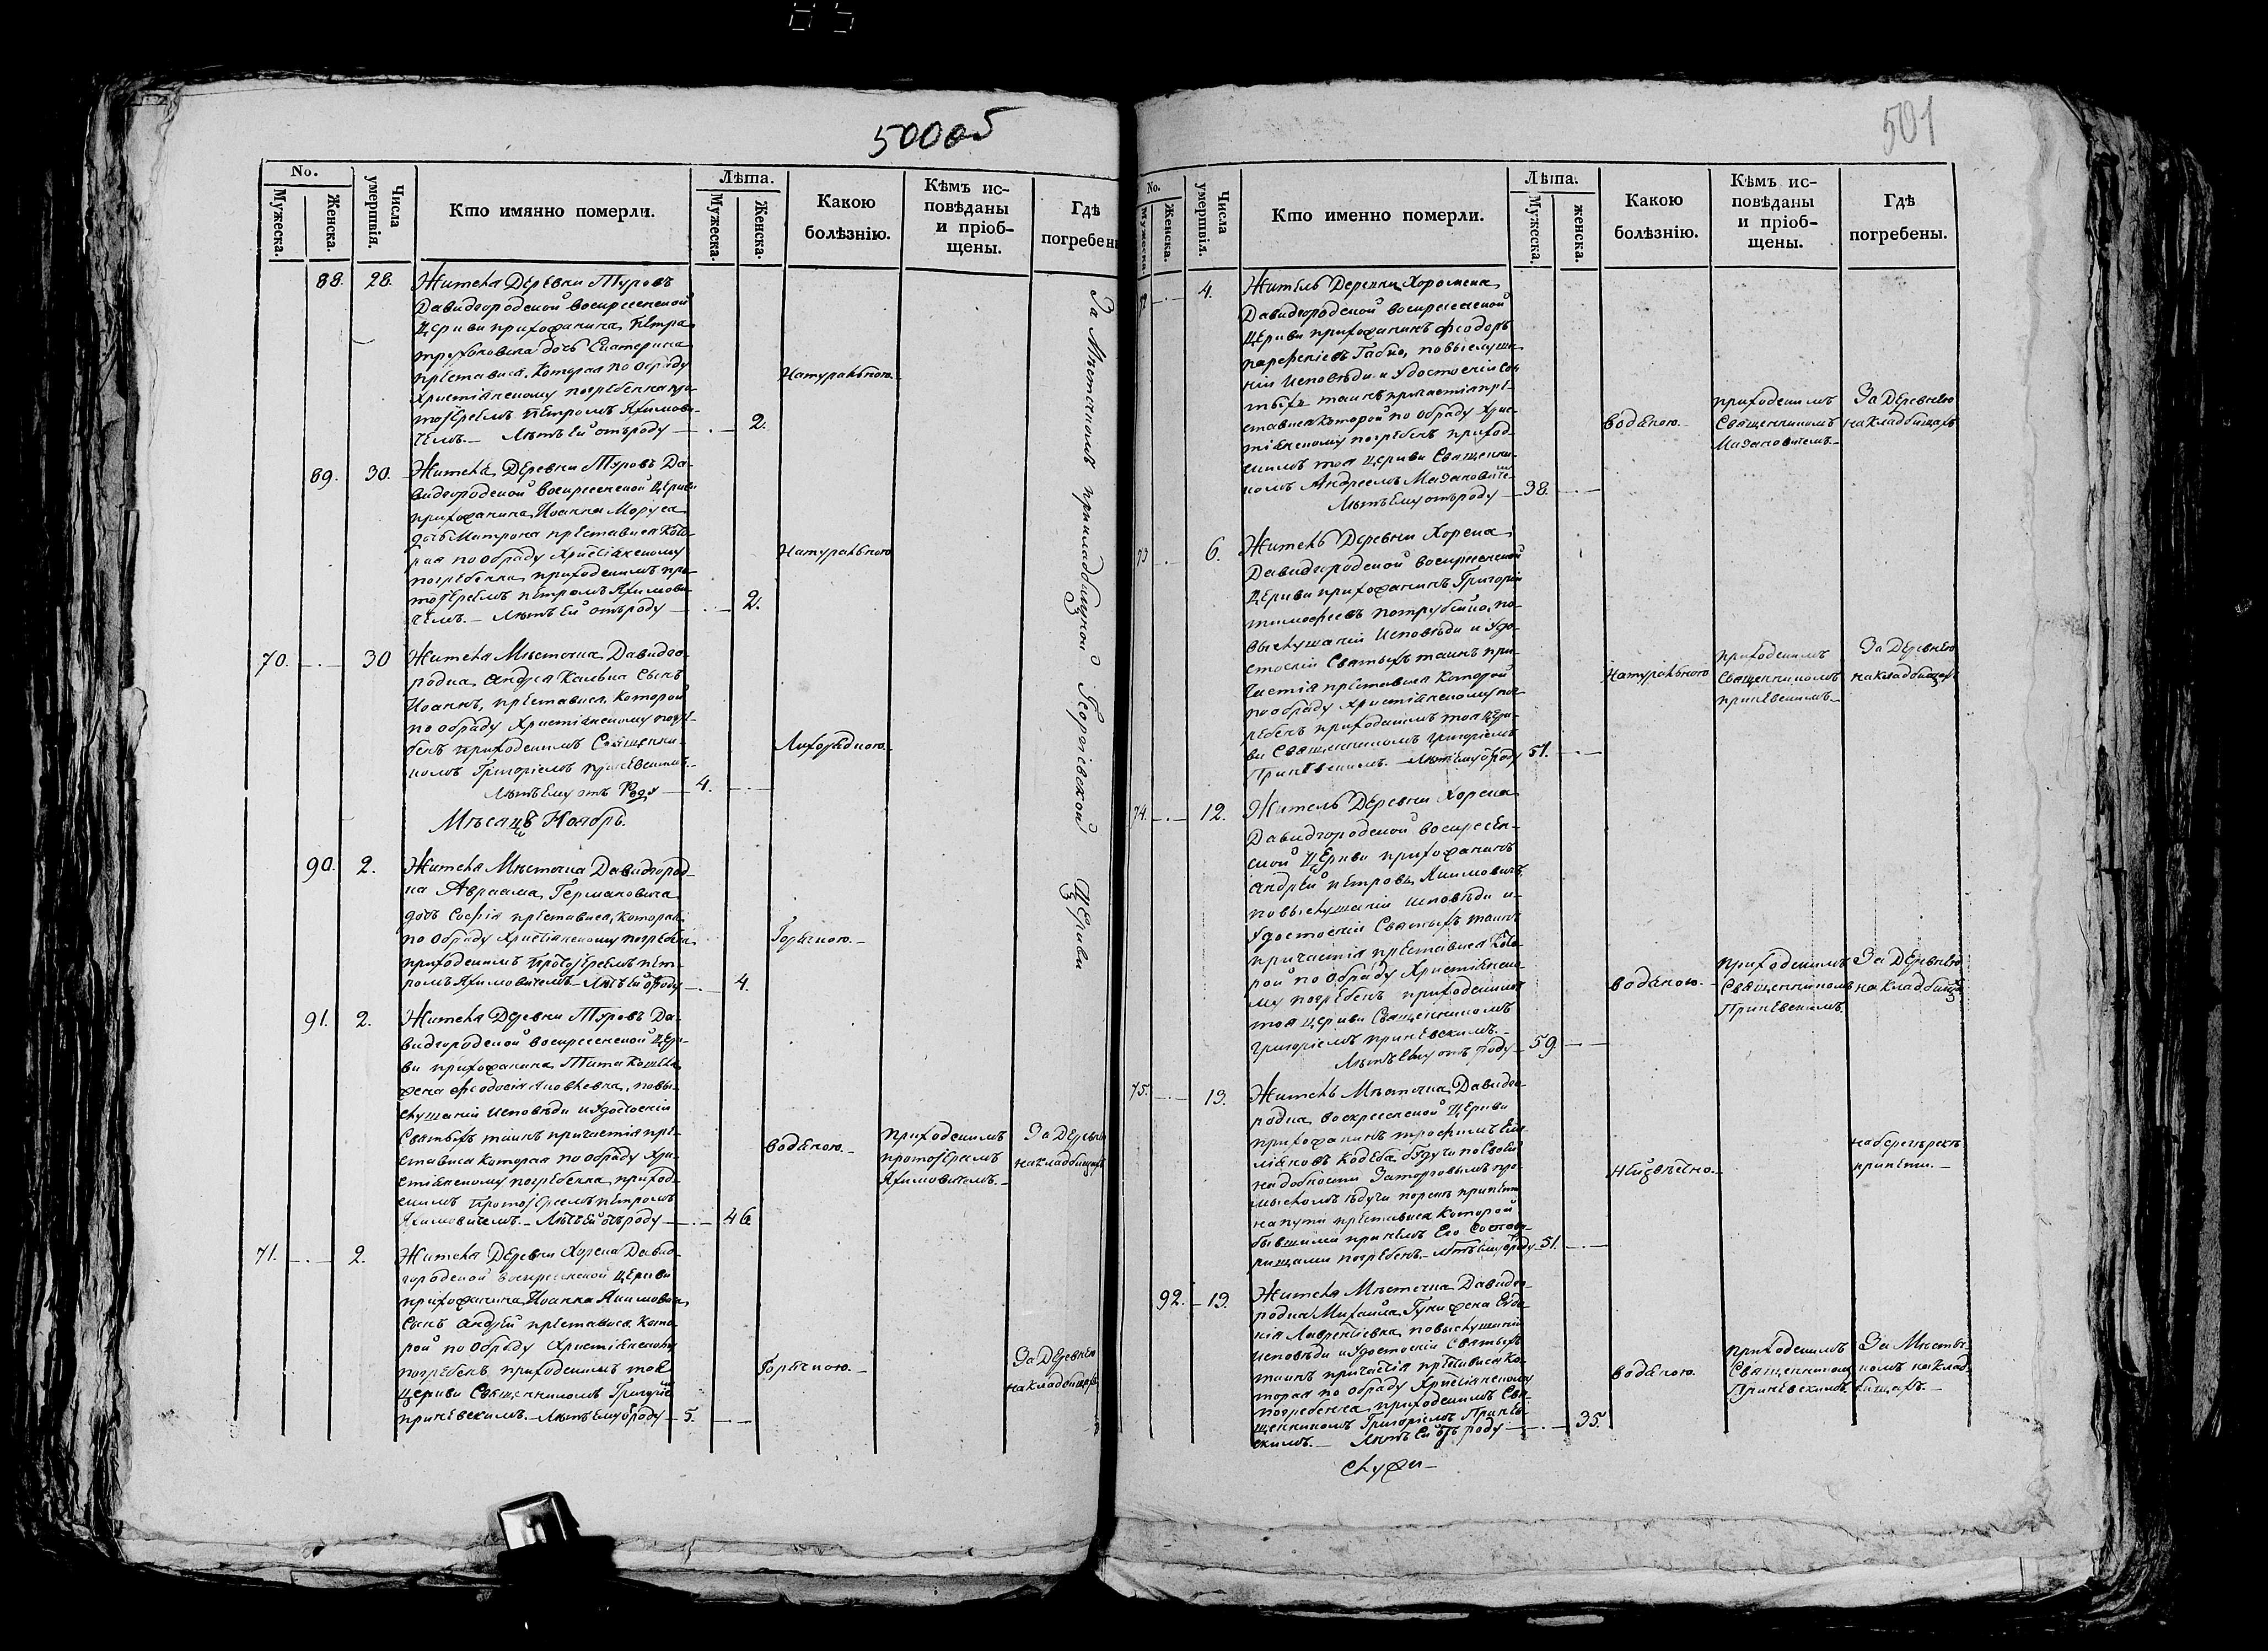 500об
No.
Мужеска.
Женска.
Числа умертвія.
Кто имянно померли.
Лѣта.
Мужеска.
Женска.
Какою болѣзнію.
Кѣмъ исповѣданы и пріобщены.
Гдѣ погребены
88. 28. Жителя Деревни Туровъ
Давидгородской воскресенской
Церкви прихожанина Петра
дочь Екатерина
преставися, которая по обряду
Христіянскому погребенна про
тоіереемъ Петромъ Якимови-
чемъ. — Лѣтъ ей отъ роду — 2.
Натуральною.
89. 30. Жителя Деревни Туровъ Да-
видгородской воскресенской Церкви
прихожанина Иоанна Моруса
дочь Матрона преставися кото-
рая по обряду Христіянскому
погребенна приходскимъ про-
тоіереемъ Петромъ Якимови-
чемъ. — Лѣтъ ей отъ роду — 2.
Натуральною
70. 30 Жителя Мѣстечка Давидго-
родка Андрея сынъ
Иоаннъ, преставися, которой
по обряду Христіянскому погре-
бенъ приходскимъ Священни-
комъ Григоріемъ
Лѣтъ ему отъ Роду — 4.
За Мѣстечкомъ прикладбищной Георгіевской Церкви
Мѣсяцъ Ноябрь.
90. 2. Жителя Мѣстечка Давидгород-
ка Авраама Германовича
дочь Софія преставися, которая
по обряду Христіянскому погребена
приходскимъ Протоіереемъ Пет-
ромъ Якимовичемъ — Лѣтъ ей отроду — 4.
Горячкою. —
91. 2. Жителя Деревни Туровъ Да-
видгородской воскресенской Церк-
ви прихожанина Тита
жена Феодосія Яковлевна, повы-
слушаніи исповѣди и удостоеніи
Святыхъ таинъ причастія пре-
ставися которая по обряду Хри-
стіянскому погребенна приход-
скимъ Протоіереемъ Петромъ
Якимовичемъ. — Лѣтъ ей отъ роду — 46
водяною. —
Приходскимъ
протоіереемъ
Якимовичемъ. —
За Деревнею
на кладбищахъ
71. 2. Жителя Деревни Хорска Давид-
городской воскресенской Церкви
прихожанина Иоанна Якимовича
сынъ Андрей преставися кото-
рой по обряду Христіянскому
погребенъ приходскимъ тоя
Церкви Священникомъ Григоріемъ
Лѣтъ ему отроду — 5.
Горячкою. —
За Деревнею
на кладбищахъ
501
No.
Мужеска.
Женска.
Числа умертвія.
Кто именно померли.
Лѣта.
Мужеска.
женска.
Какою болѣзнію.
Кѣмъ исповѣданы и пріобщены.
Гдѣ погребены.
72 4. Житель Деревни Хоромска
Давидгородской воскресенской
Церкви прихожанинъ Феодоръ
повыслуша-
ніи исповѣди и удостоеніи Свя-
тыхъ таинъ причастія пре-
ставися которой по обряду Хрис-
тіянскому погребенъ приход-
скимъ тоя Церкви Священни-
комъ Андреемъ
Лѣтъ ему отъ роду — 38.
водяною. —
приходскимъ
Священникомъ
За Деревнею
на кладбищахъ
73 6. Житель Деревни Хорска
Давидгородской воскресенской
Церкви прихожанинъ Григорій
Тимофеевъ по-
выслушаніи исповѣди и удо-
стоеніи Святыхъ таинъ при-
частія преставися которой
по обряду Христіянскому пог-
ребенъ приходскимъ тоя Церк-
ви Священникомъ Григоріемъ
Лѣтъ ему отроду 57.
Натуральною
приходскимъ
Священникомъ
За Деревнею
на кладбищахъ
74. 12. Житель Деревни Хорска
Давидгородской воскресен-
ской Церкви прихожанинъ
Андрей Петровъ Якимовичъ,
повыслушаніи исповѣди и
удостоеніи Святыхъ таинъ
причастія преставися кото-
рой по обряду Христіянско-
му погребенъ приходскимъ
тоя церкви Священникомъ
Лѣтъ ему отъ роду — 59.
водяною. —
Приходскимъ
Священникомъ
За Деревнею
на кладбищахъ
75. 13. Житель Мѣстечка Давидго-
родка воскресенской Церкви
прихожанинъ Трофимъ
будучи по своей
надобности за торговымъ про-
мысломъ ѣдучи
на пути преставися которой
бывшими при немъ его состова-
рищами погребенъ. — лѣтъ ему отроду — 51.
Неизвѣстно. —
на березѣ рекѣ
92. 13. Жителя Мѣстечка Давидго-
родка Михаила жена Евдо-
кія Лаврентіевна, повыслушаніи
исповѣди и удостоеніи Святыхъ
таинъ причастія преставися ко-
торая по обряду Христіянскому
погребенна приходскимъ Свя-
щенникомъ Григоріемъ
Лѣтъ ей отъ роду — 35.
водяною.
приходскимъ
Священникомъ
За Мѣстеч-
комъ на клад-
бищахъ. —